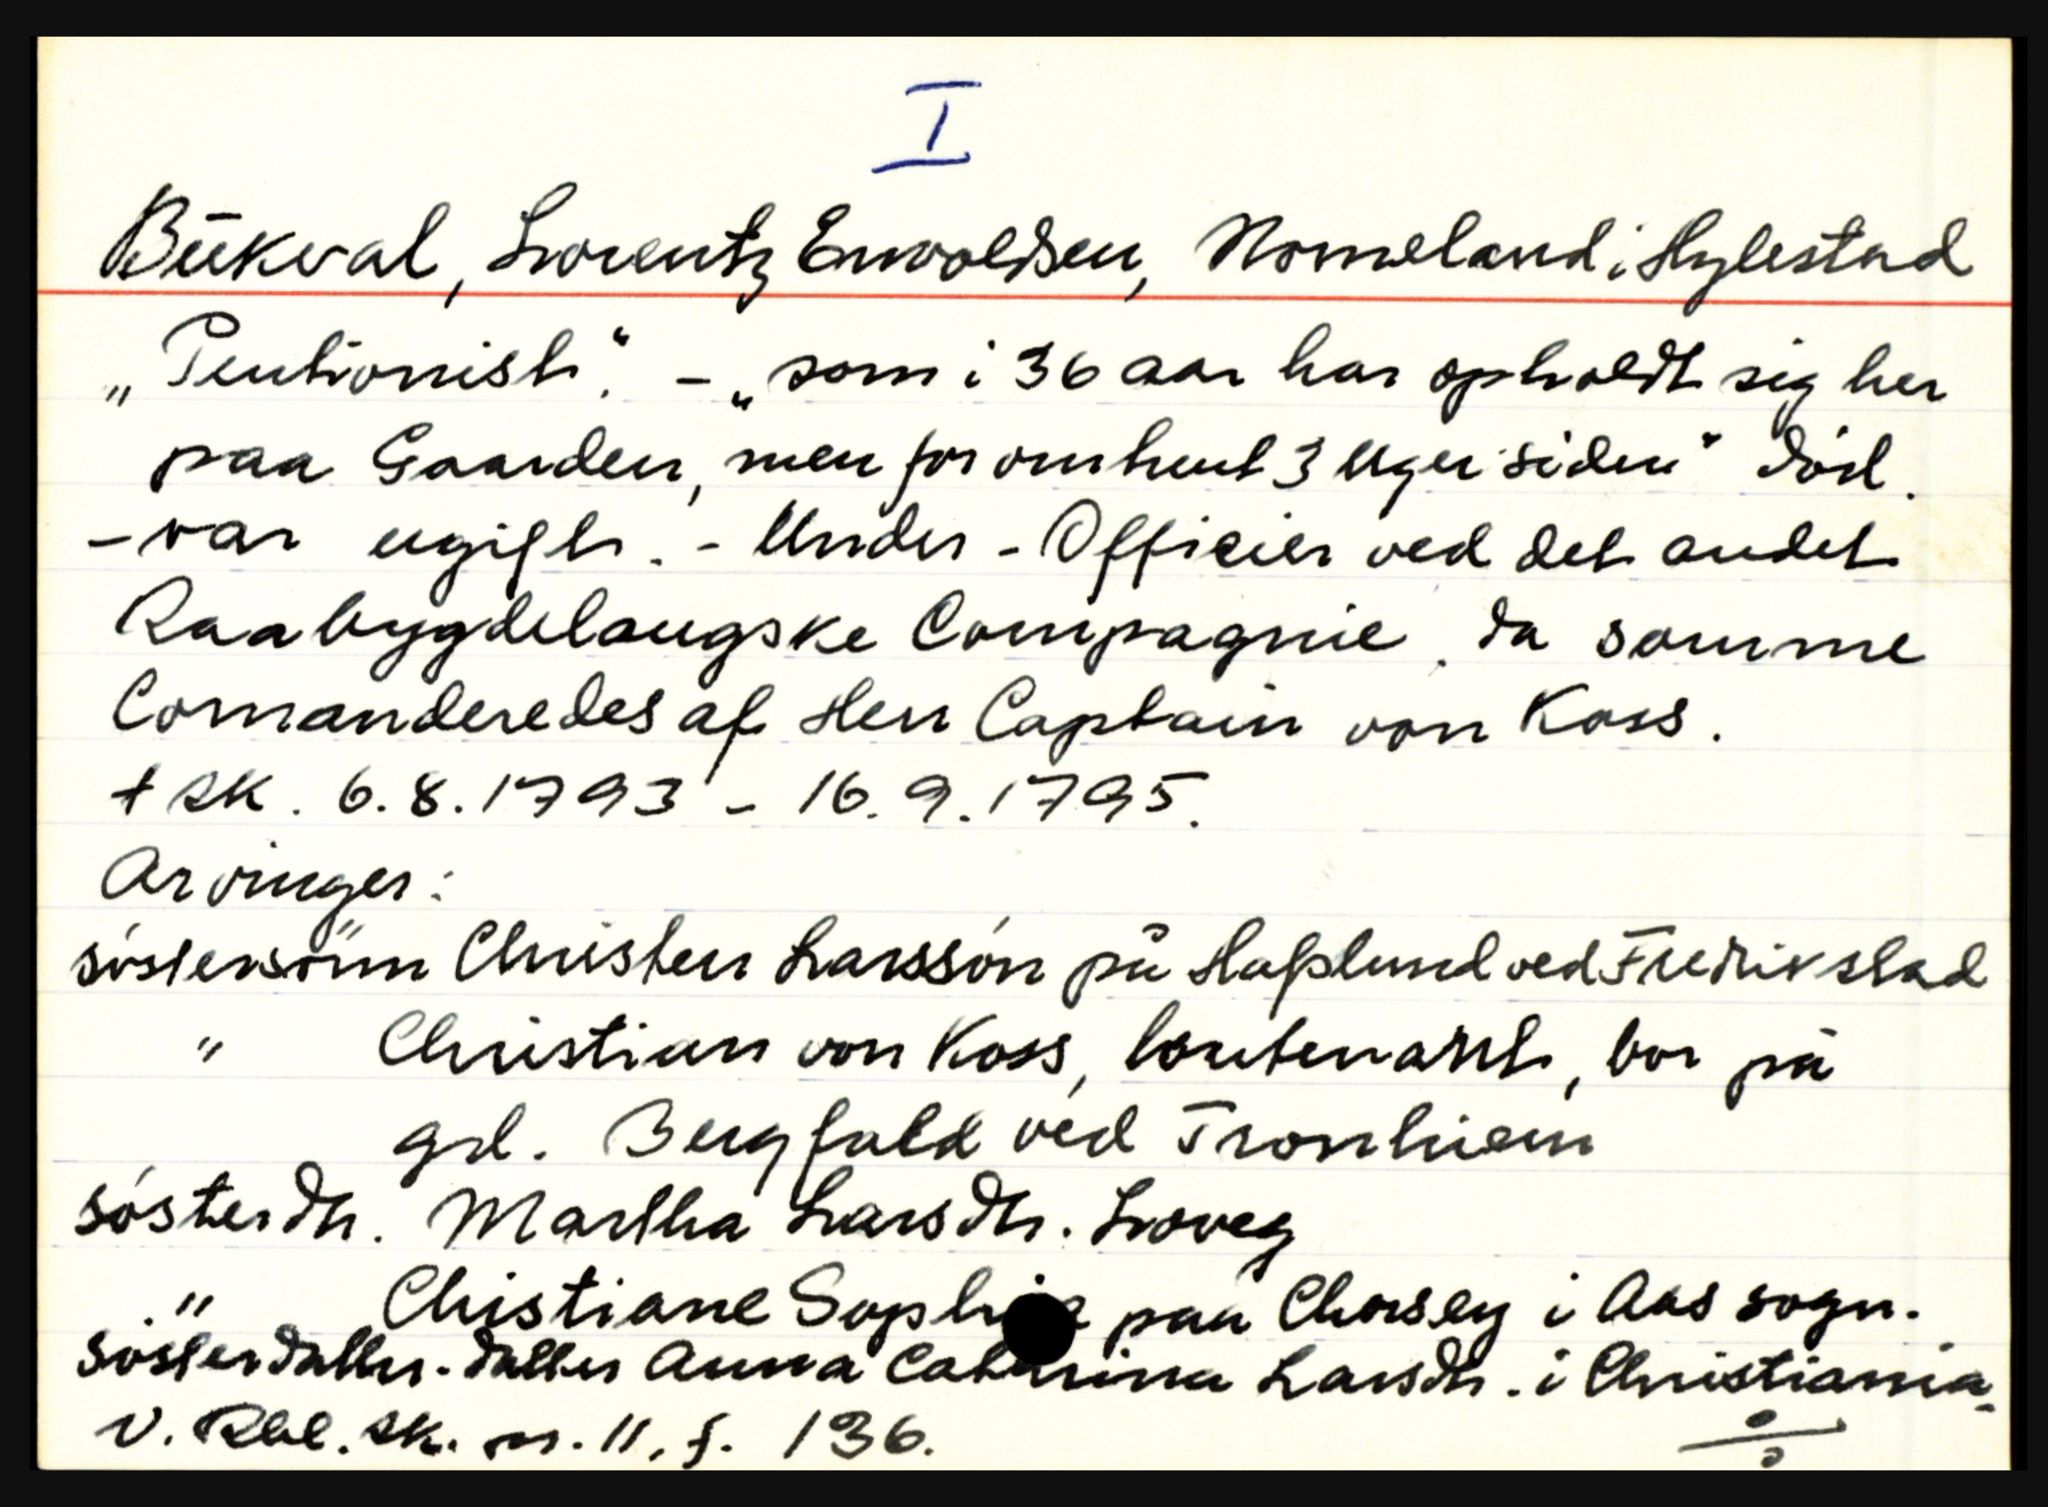 I
Bükval, Lorentz Enwoldsen, Nomeland i Hylestad
„Pentionist“. – „som i 36 aar har opholdt sig her
paa Gaarden, men for omhent 3 Uger siden“ død.
– var ugift. – Under-Officier ved det andet
Raabygdelaugske Compagnie, da samme
Comanderedes af Herr Captain von Koss.
† sk. 6.8.1793 – 16.9.1795.
Arvinger:
søstersønn Christen Larssøn på Hafslund ved Fredrikstad
" Christian von Koss, loutenant, bor på
grd. Bergfald ved Tronhiem
søsterdtr. Martha Larsdtr. Loveg
" Christiane Sophie paa Chorsey i Aas sogn.
søsterdatter-datter Anna Catrina Larsdtr. i Christiania.
V. Rbl. sk. nr. 11, f. 136.